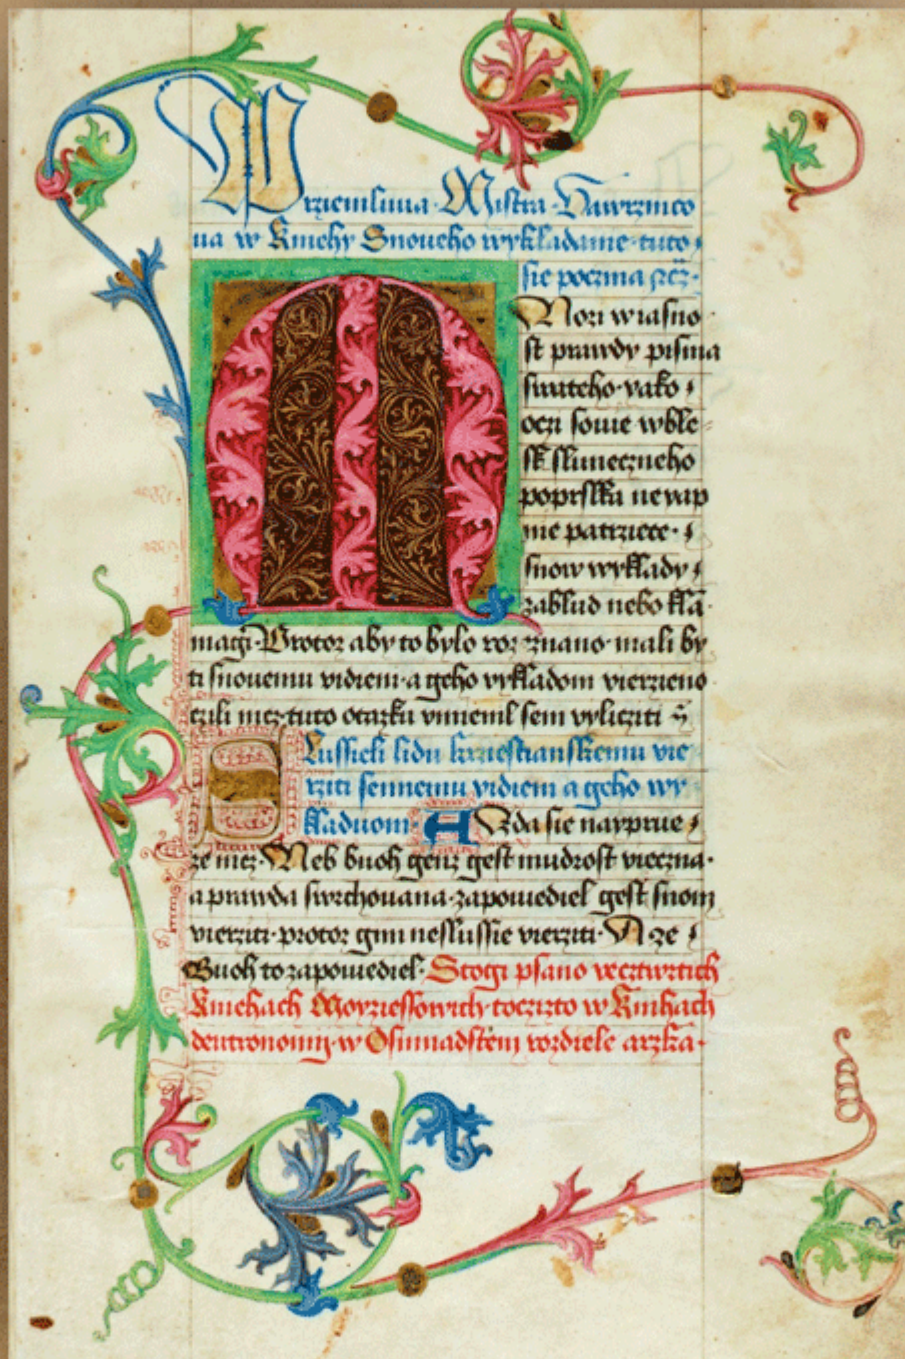 Prziemluua Mistra Vawrzinco
ua w Kniehy Snoueho wykladanie tuto
sie poczina
Mnozi w iasno
st prawdy pisma
swateho yako
oczi sowie w ble
sk sluneczneho
poprsslku ne
mie patrziece
snow wyklady
zablud nebo kla
magi Protoz aby to bylo roz znano mali by
ti snouemu vidieni a geho vykladom vierzieno
czili nicz tuto otazku vmienil sem vylicziti
Slussieli lidu krziestianskemu vie
rziti sennemu vidieni a geho wy
kladuom A Zda sie nayprue
ze nicz Neb buoh genz gest mudrost vieczna
a prawda swrchouana zapowiediel gest snom
vierziti protoz gim neslussie vierziti A ze
Buoh to zapowiediel Stogi psano we cztwrtich
Kniehach Moyziessowich toczizto w Knihach
deutronomy w Osmnadstem rozdiele arzka